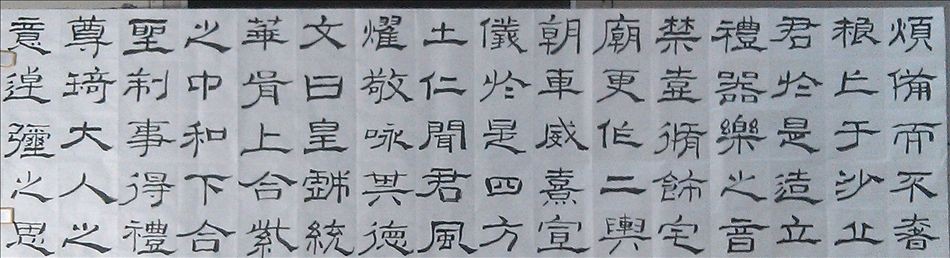 煩備而不奢
粮亡于沙丘
君於是造立
禮器樂之音
禁壺脩飾宅
廟更作二輿
朝車威熹宣
儀於是四方
土仁聞君風
燿敬咏其德
文曰皇戲統
華胥上合紫
之中和下合
聖制事得禮
尊琦大人之
意逴彌之思